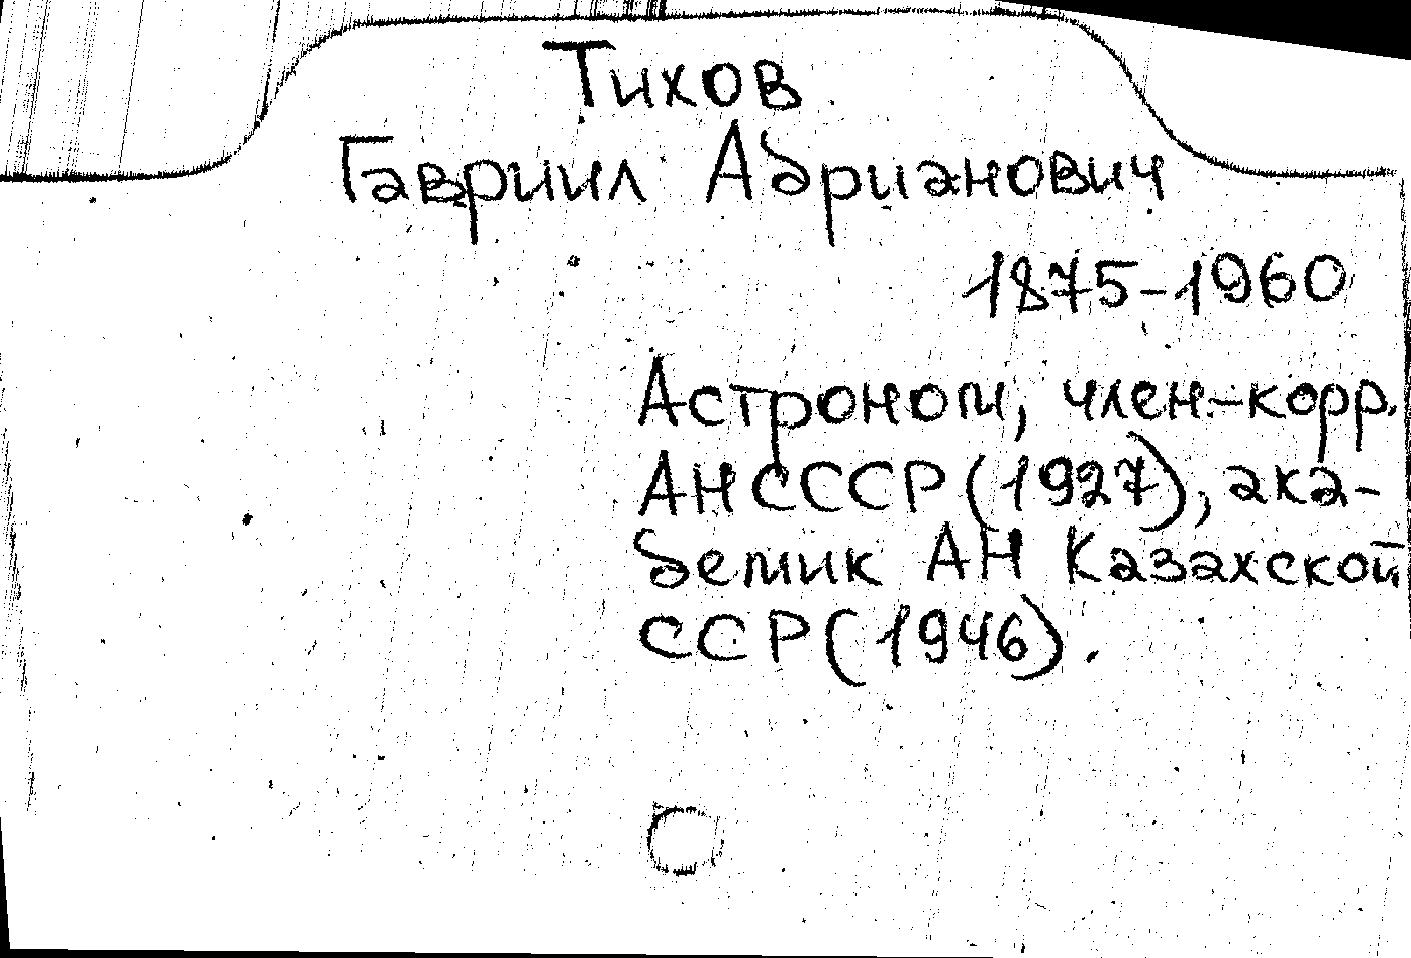 Тихов
Гавриил Адрианович
1875-1960
Астроном, член-корр.
АН СССР (1927), ака-
демик АН Казахской
ССР (1946).